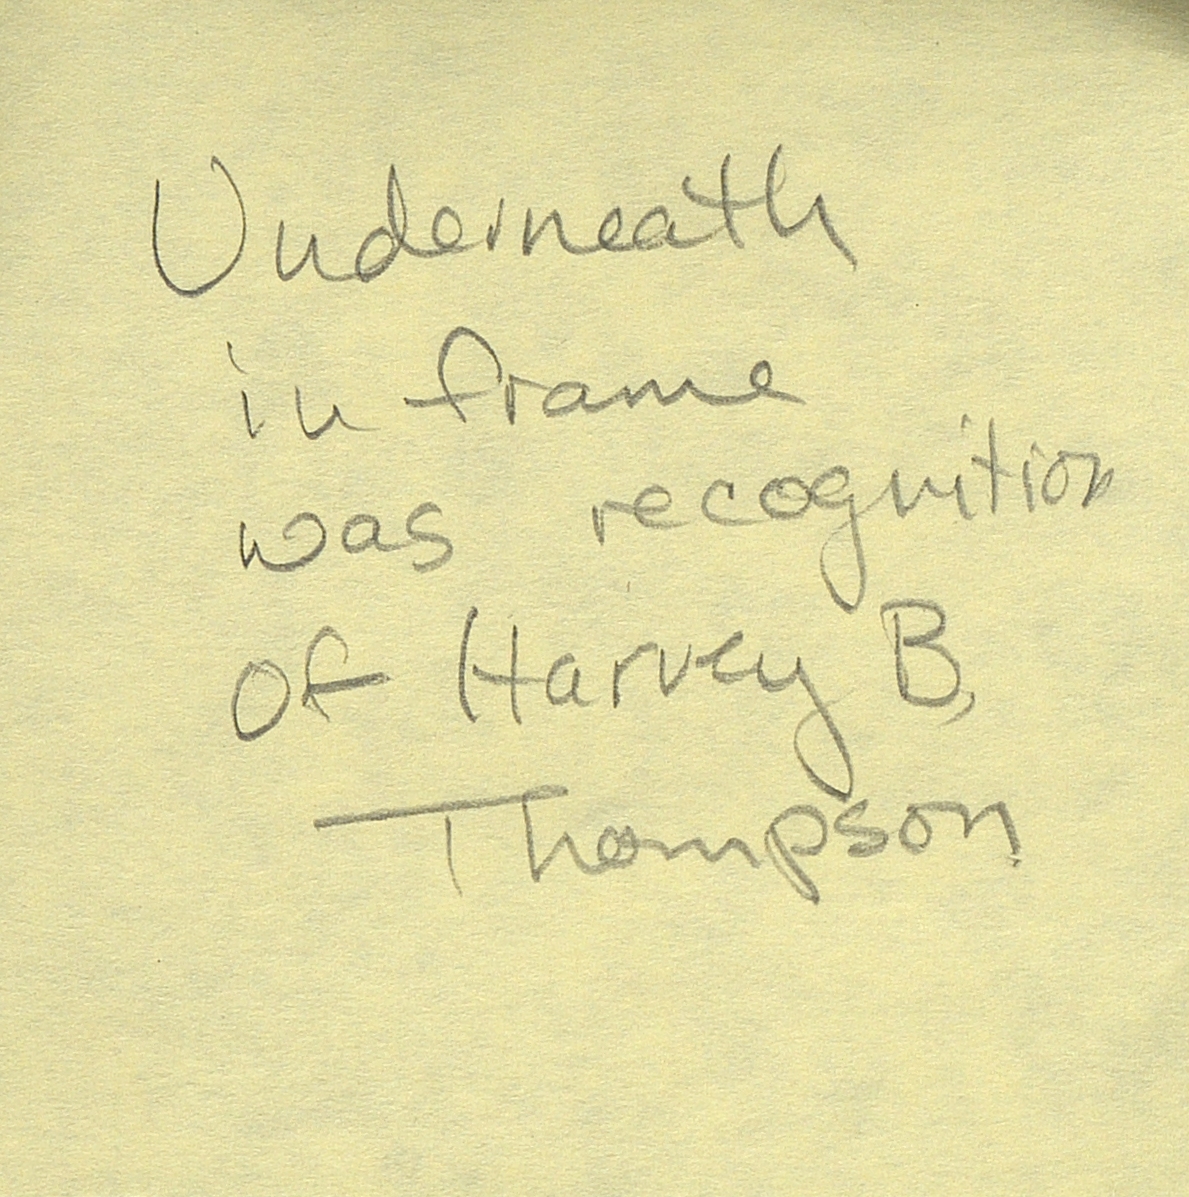 Underneath
in frame
was recognition
of Harvey B.
Thompson